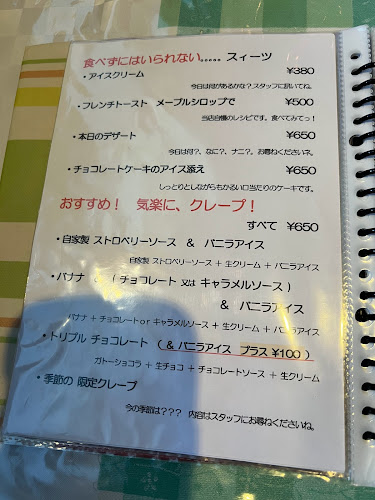 食べずにはいられない..... スィーツ
・アイスクリーム ¥380
今日は何があるかな?スタッフに訊いてね。
・フレンチトースト メープルシロップで ¥500
当店自慢のレシピです。食べてみてっ!
・本日のデザート ¥650
今日は何?、なに?、ナニ?。お尋ねくださいネ。
・チョコレートケーキのアイス添え ¥650
しっとりとしながらもかるい口当たりのケーキです。
おすすめ! 気楽に、クレープ!
すべて ¥650
・自家製 ストロベリーソース & バニラアイス
自家製 ストロベリーソース + 生クリーム + バニラアイス
・バナナ (チョコレート 又は キャラメルソース)
& バニラアイス
バナナ + チョコレートorキャラメルソース + 生クリーム + バニラアイス
・トリプル チョコレート (& バニラアイス プラス ¥100)
ガトーショコラ + 生チョコ + チョコレートソース + 生クリーム
・季節の 限定クレープ
今の季節は??? 内容はスタッフにお尋ねくださいね。